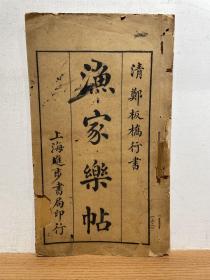 清鄭板橋行書
漁家樂帖
上海進步書局印行